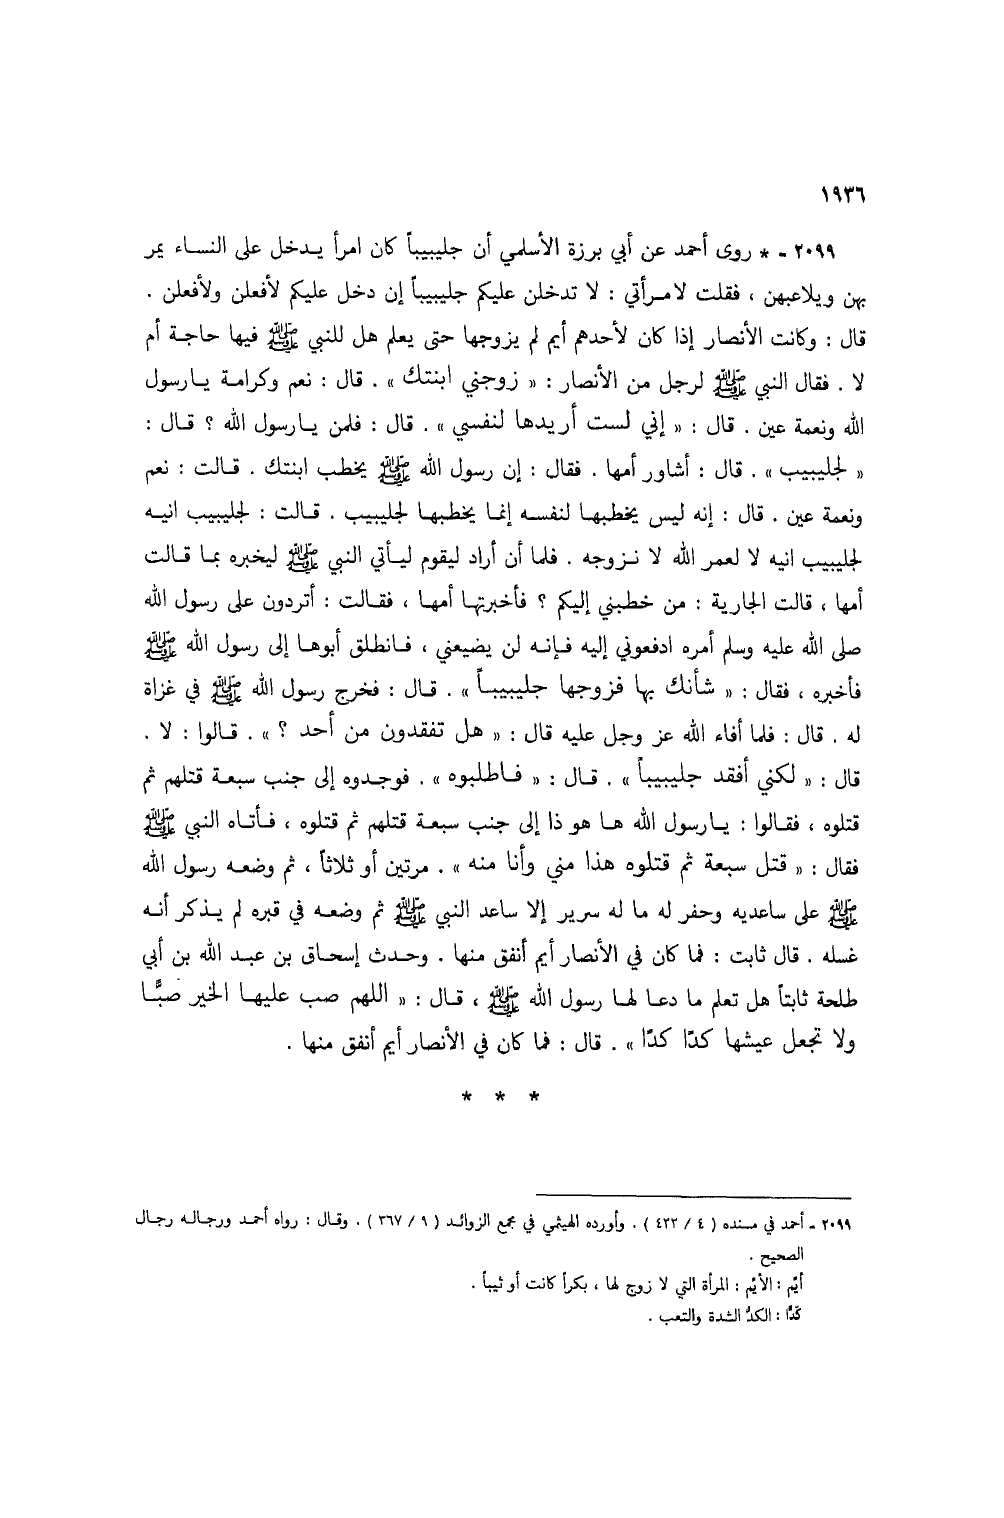 ١٩٣٦
٢٠٩٩ - * روى أحمد عن أبي برزة الأسلمي أن جليبيباً كان امرأ يدخل على النساء يمر
بهن ويلاعبهن ، فقلت لامرأتي : لا تدخلن عليكم جليبيباً إن دخل عليكم لأفعلن ولأفعلن .
قال : وكانت الأنصار إذا كان لأحدهم أيم لم يزوجها حتى يعلم هل للنبي ﷺ فيها حاجة أم
لا . فقال النبي ﷺ لرجل من الأنصار : « زوجني ابنتك » . قال : نعم وكرامة يارسول
الله ونعمة عين . قال : « إني لست أريدها لنفسي » . قال : فلمن يارسول الله ؟ قال :
« لجليبيب » . قال : أشاور أمها . فقال : إن رسول الله ﷺ يخطب ابنتك . قالت : نعم
ونعمة عين . قال : إنه ليس يخطبها لنفسه إنما يخطبها لجليبيب . قالت : لجليبيب انيه
لجليبيب انيه لا لعمر الله لا نزوجه . فلما أن أراد ليقوم ليأتي النبي ﷺ ليخبره بما قالت
أمها ، قالت الجارية : من خطبني إليكم ؟ فأخبرتها أمها ، فقالت : أتردون على رسول الله
صلى الله عليه وسلم أمره ادفعوني إليه فإنه لن يضيعني ، فانطلق أبوها إلى رسول الله ﷺ
فأخبره ، فقال : « شأنك بها فزوجها جليبيباً » . قال : فخرج رسول الله ﷺ في غزاة
له . قال : فلما أفاء الله عز وجل عليه قال : « هل تفقدون من أحد ؟ » . قالوا : لا .
قال : « لكني أفقد جليبيباً » . قال : « فاطلبوه » . فوجدوه إلى جنب سبعة قتلهم ثم
قتلوه ، فقالوا : يارسول الله ها هو ذا إلى جنب سبعة قتلهم ثم قتلوه ، فأتاه النبي ﷺ
فقال : « قتل سبعة ثم قتلوه هذا مني وأنا منه » . مرتين أو ثلاثاً ، ثم وضعه رسول الله
ﷺ على ساعديه وحفر له ما له سرير إلا ساعد النبي ﷺ ثم وضعه في قبره لم يذكر أنه
غسله . قال ثابت : فما كان في الأنصار أيم أنفق منها . وحدث إسحاق بن عبد الله بن أبي
طلحة ثابتاً هل تعلم ما دعا لها رسول الله ﷺ ، قال : « اللهم صب عليها الخير صبًّا
ولا تجعل عيشها كدًا كدًا » . قال : فما كان في الأنصار أيم أنفق منها .
* * *
٢٠٩٩ - أحمد في مسنده ( ٤ / ٤٢٢ ) . وأورده الهيثمي في مجمع الزوائد ( ٩ / ٣٦٧ ) . وقال : رواه أحمد ورجاله رجال
الصحيح .
أيِّم : الأيِّم : المرأة التي لا زوج لها ، بكراً كانت أو ثيباً .
كدًّا : الكدُّ الشدة والتعب .